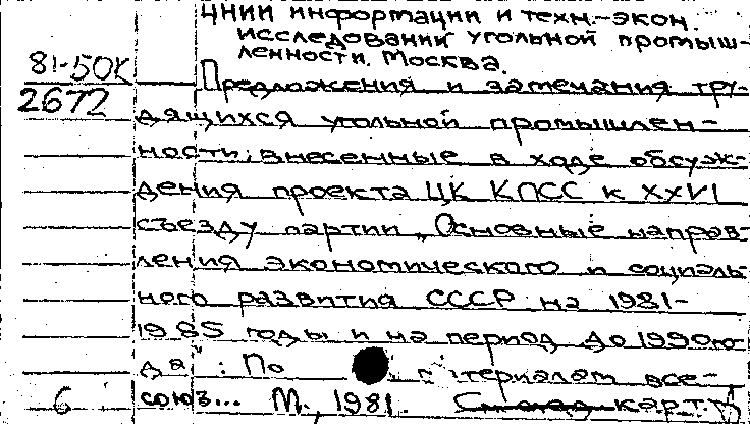 ЦНИИ информации и техн.-экон.
исследований угольной промыш-
ленности. Москва.
81-50К
Предложения и замечания тру-
2672
дящихся угольной промышлен-
ности, внесенные в ходе обсуж-
дения проекта ЦК КПСС к XXVI
съезду партии "Основные направ-
ления экономического и социаль
ного развития СССР на 1981-
1985 годы и на период до 1990 го-
да": По материалам все-
6 союз... М., 1981. карт.